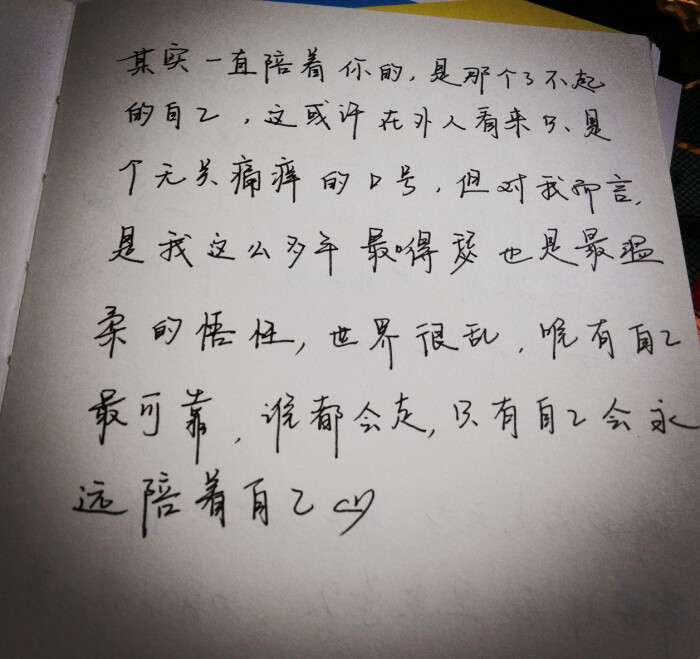 其实一直陪着你的，是那个了不起
的自己，这或许在外人看来只是
个无关痛痒的口号，但对我而言，
是我这么多年最嘚瑟也是最温
柔的悟性，世界很乱，唯有自己
最可靠，谁都会走，只有自己会永
远陪着自己